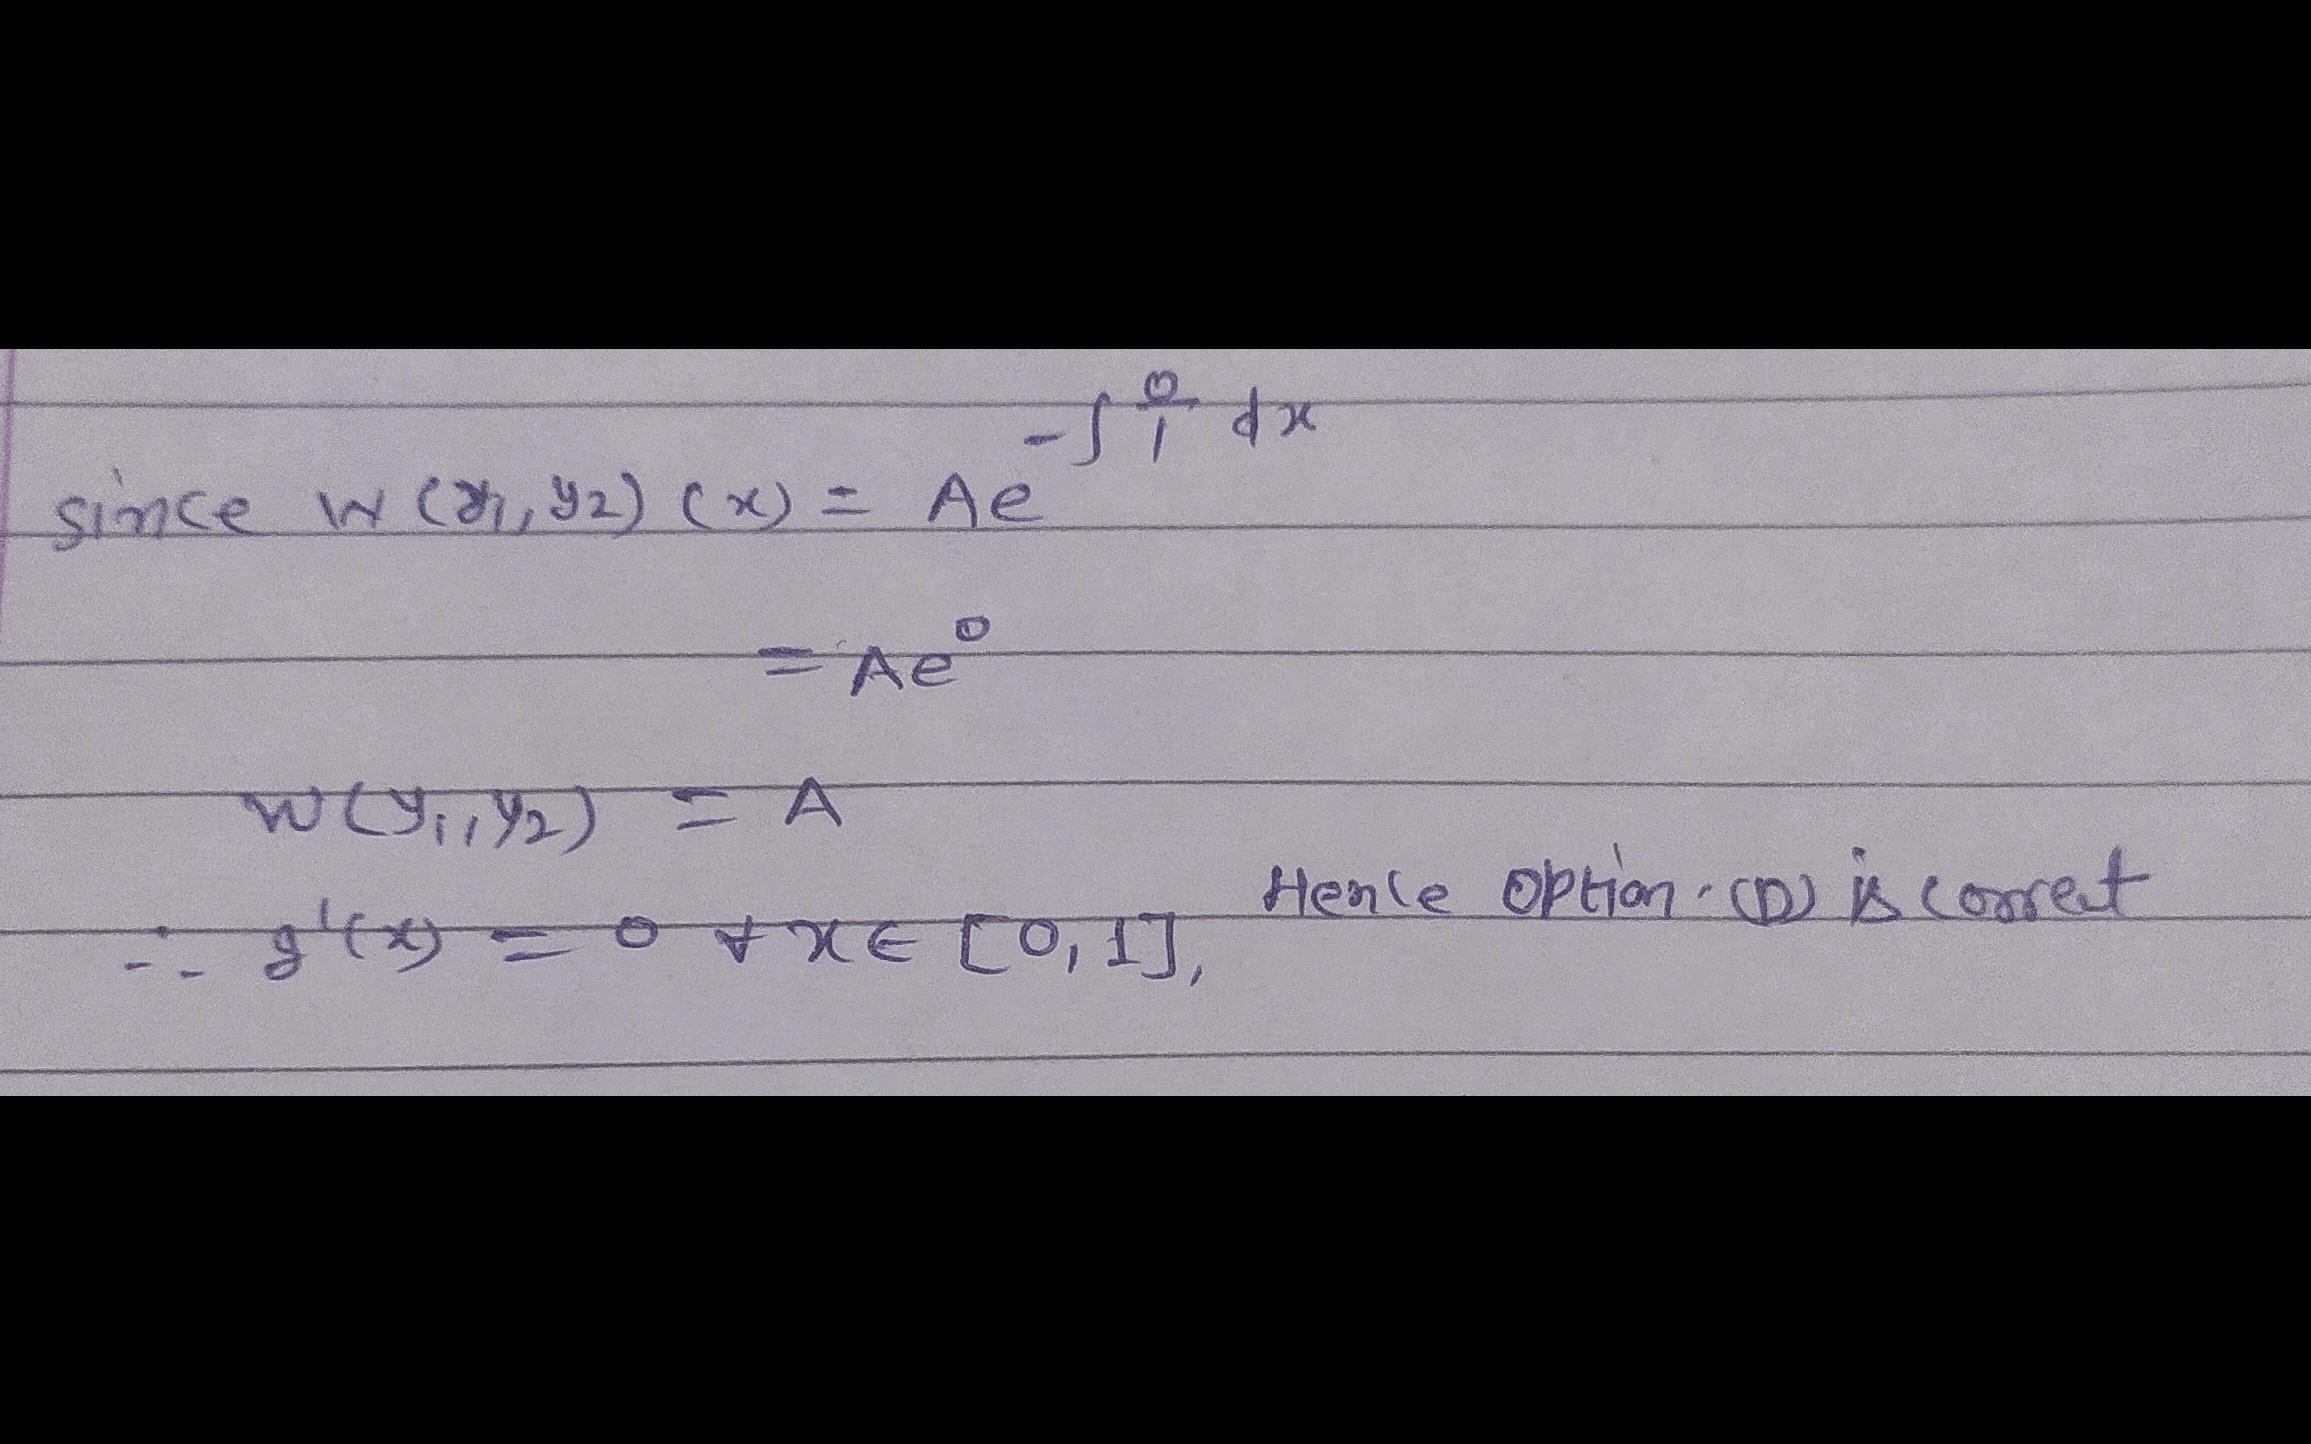 since W(y1, y2) (x) = Ae^{-∫ 0/1 dx}
= Ae^0
W(y1, y2) = A
∴ g'(x) = 0 ∀ x ∈ [0, 1], Hence option. (D) is correct